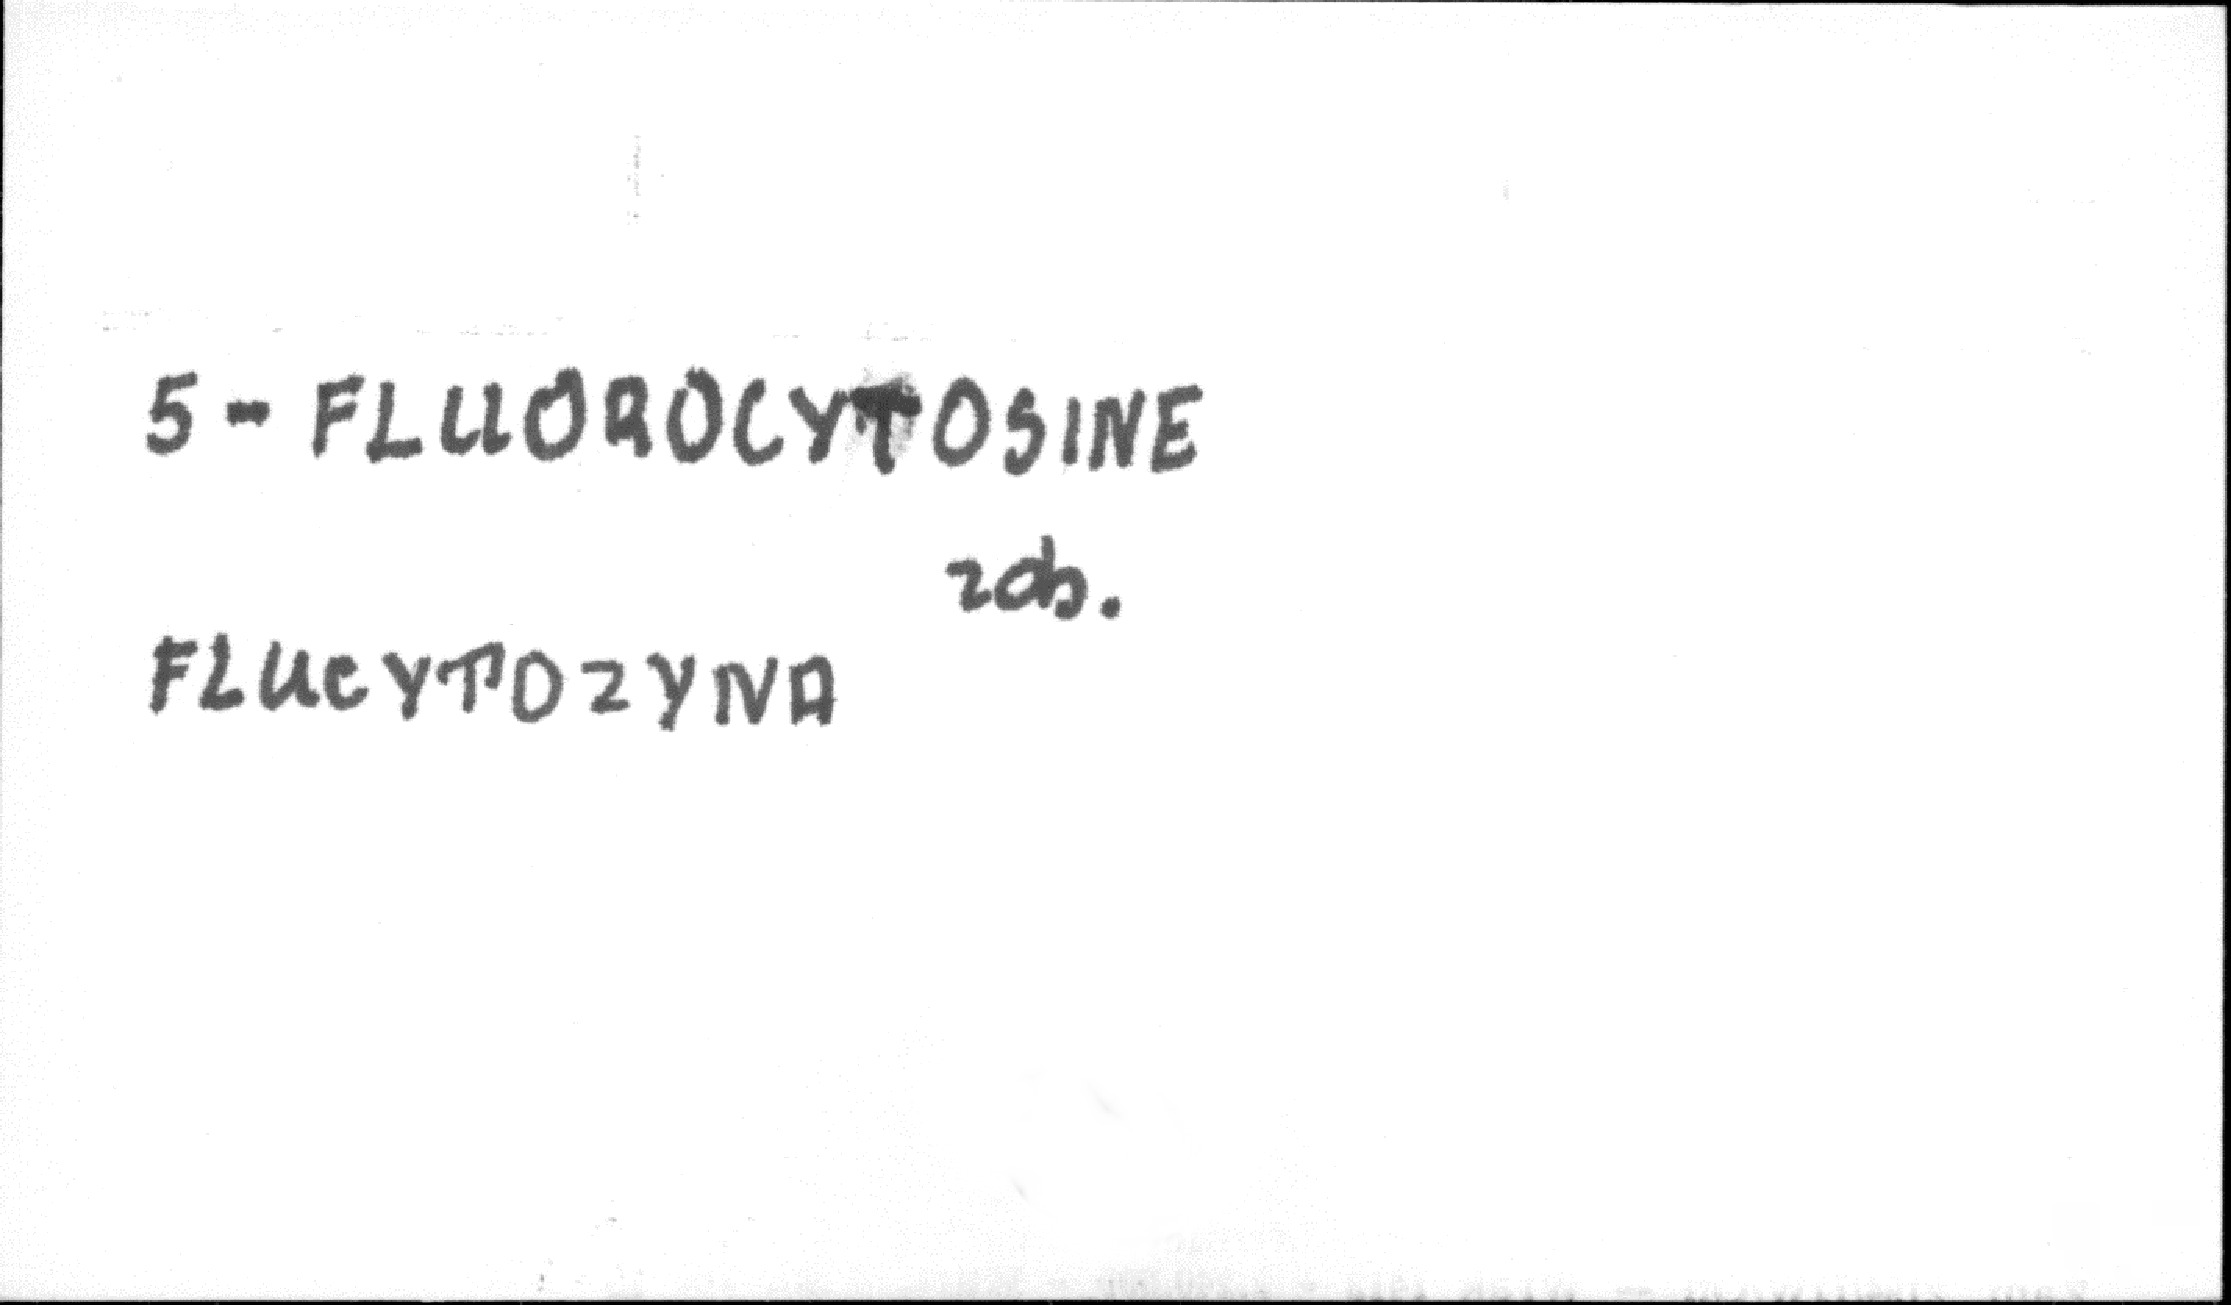 5-FLUOROCYTOSINE
zob.
FLUCYTOZYNA